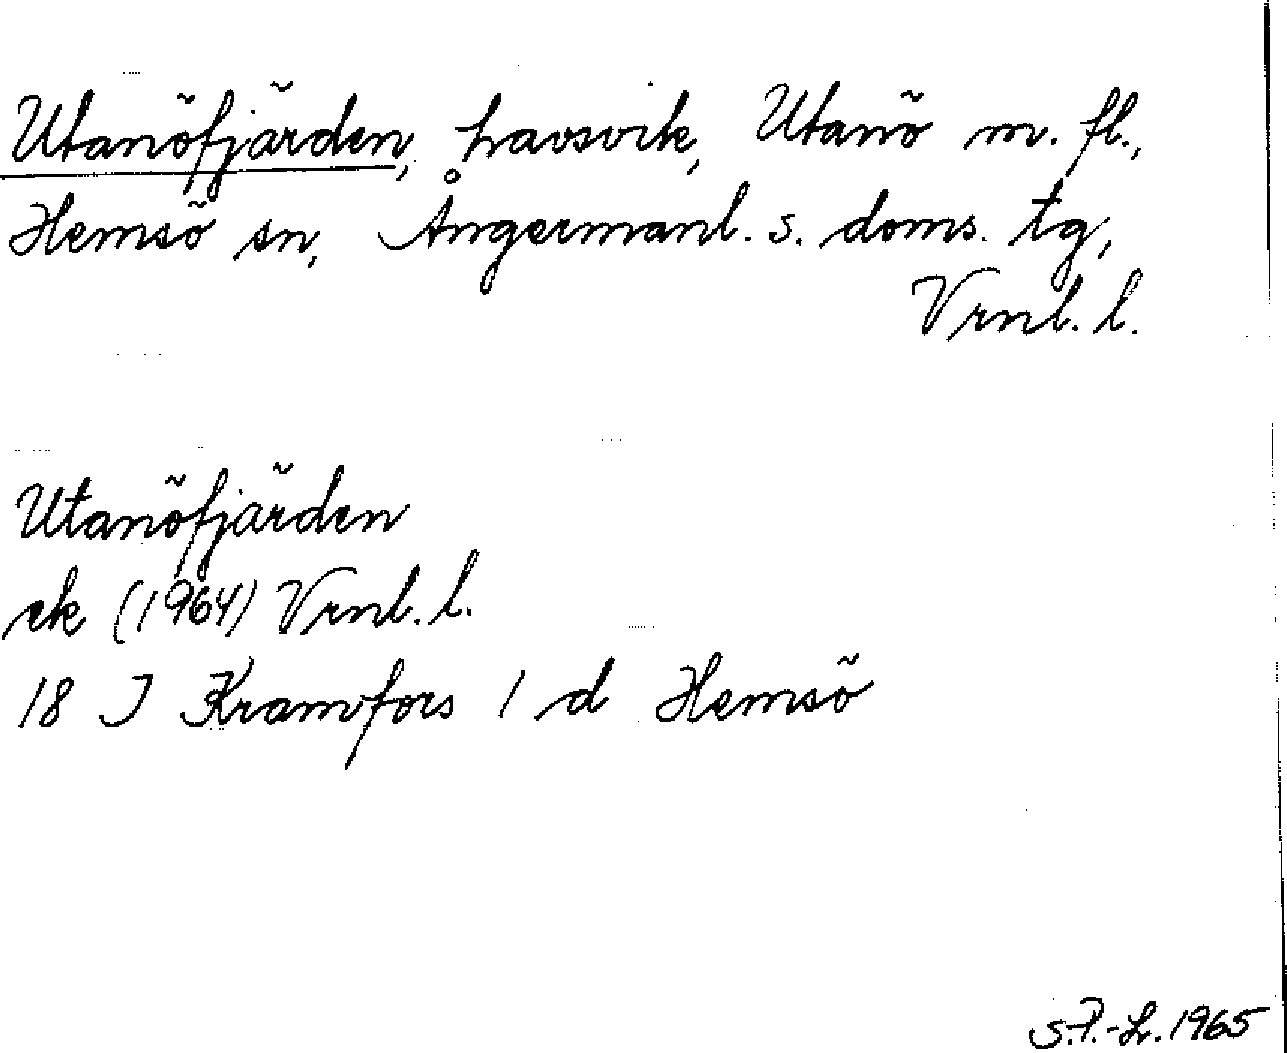 Utanöfjärden, havsvik, Utanö m. fl.,
Hemsö sn, Ångermanl. s. doms. tg,
Vrnl. l.
Utanöfjärden
ek (1964) Vrnl. l.
18 I Kramfors 1 d Hemsö
S.P.-L. 1965